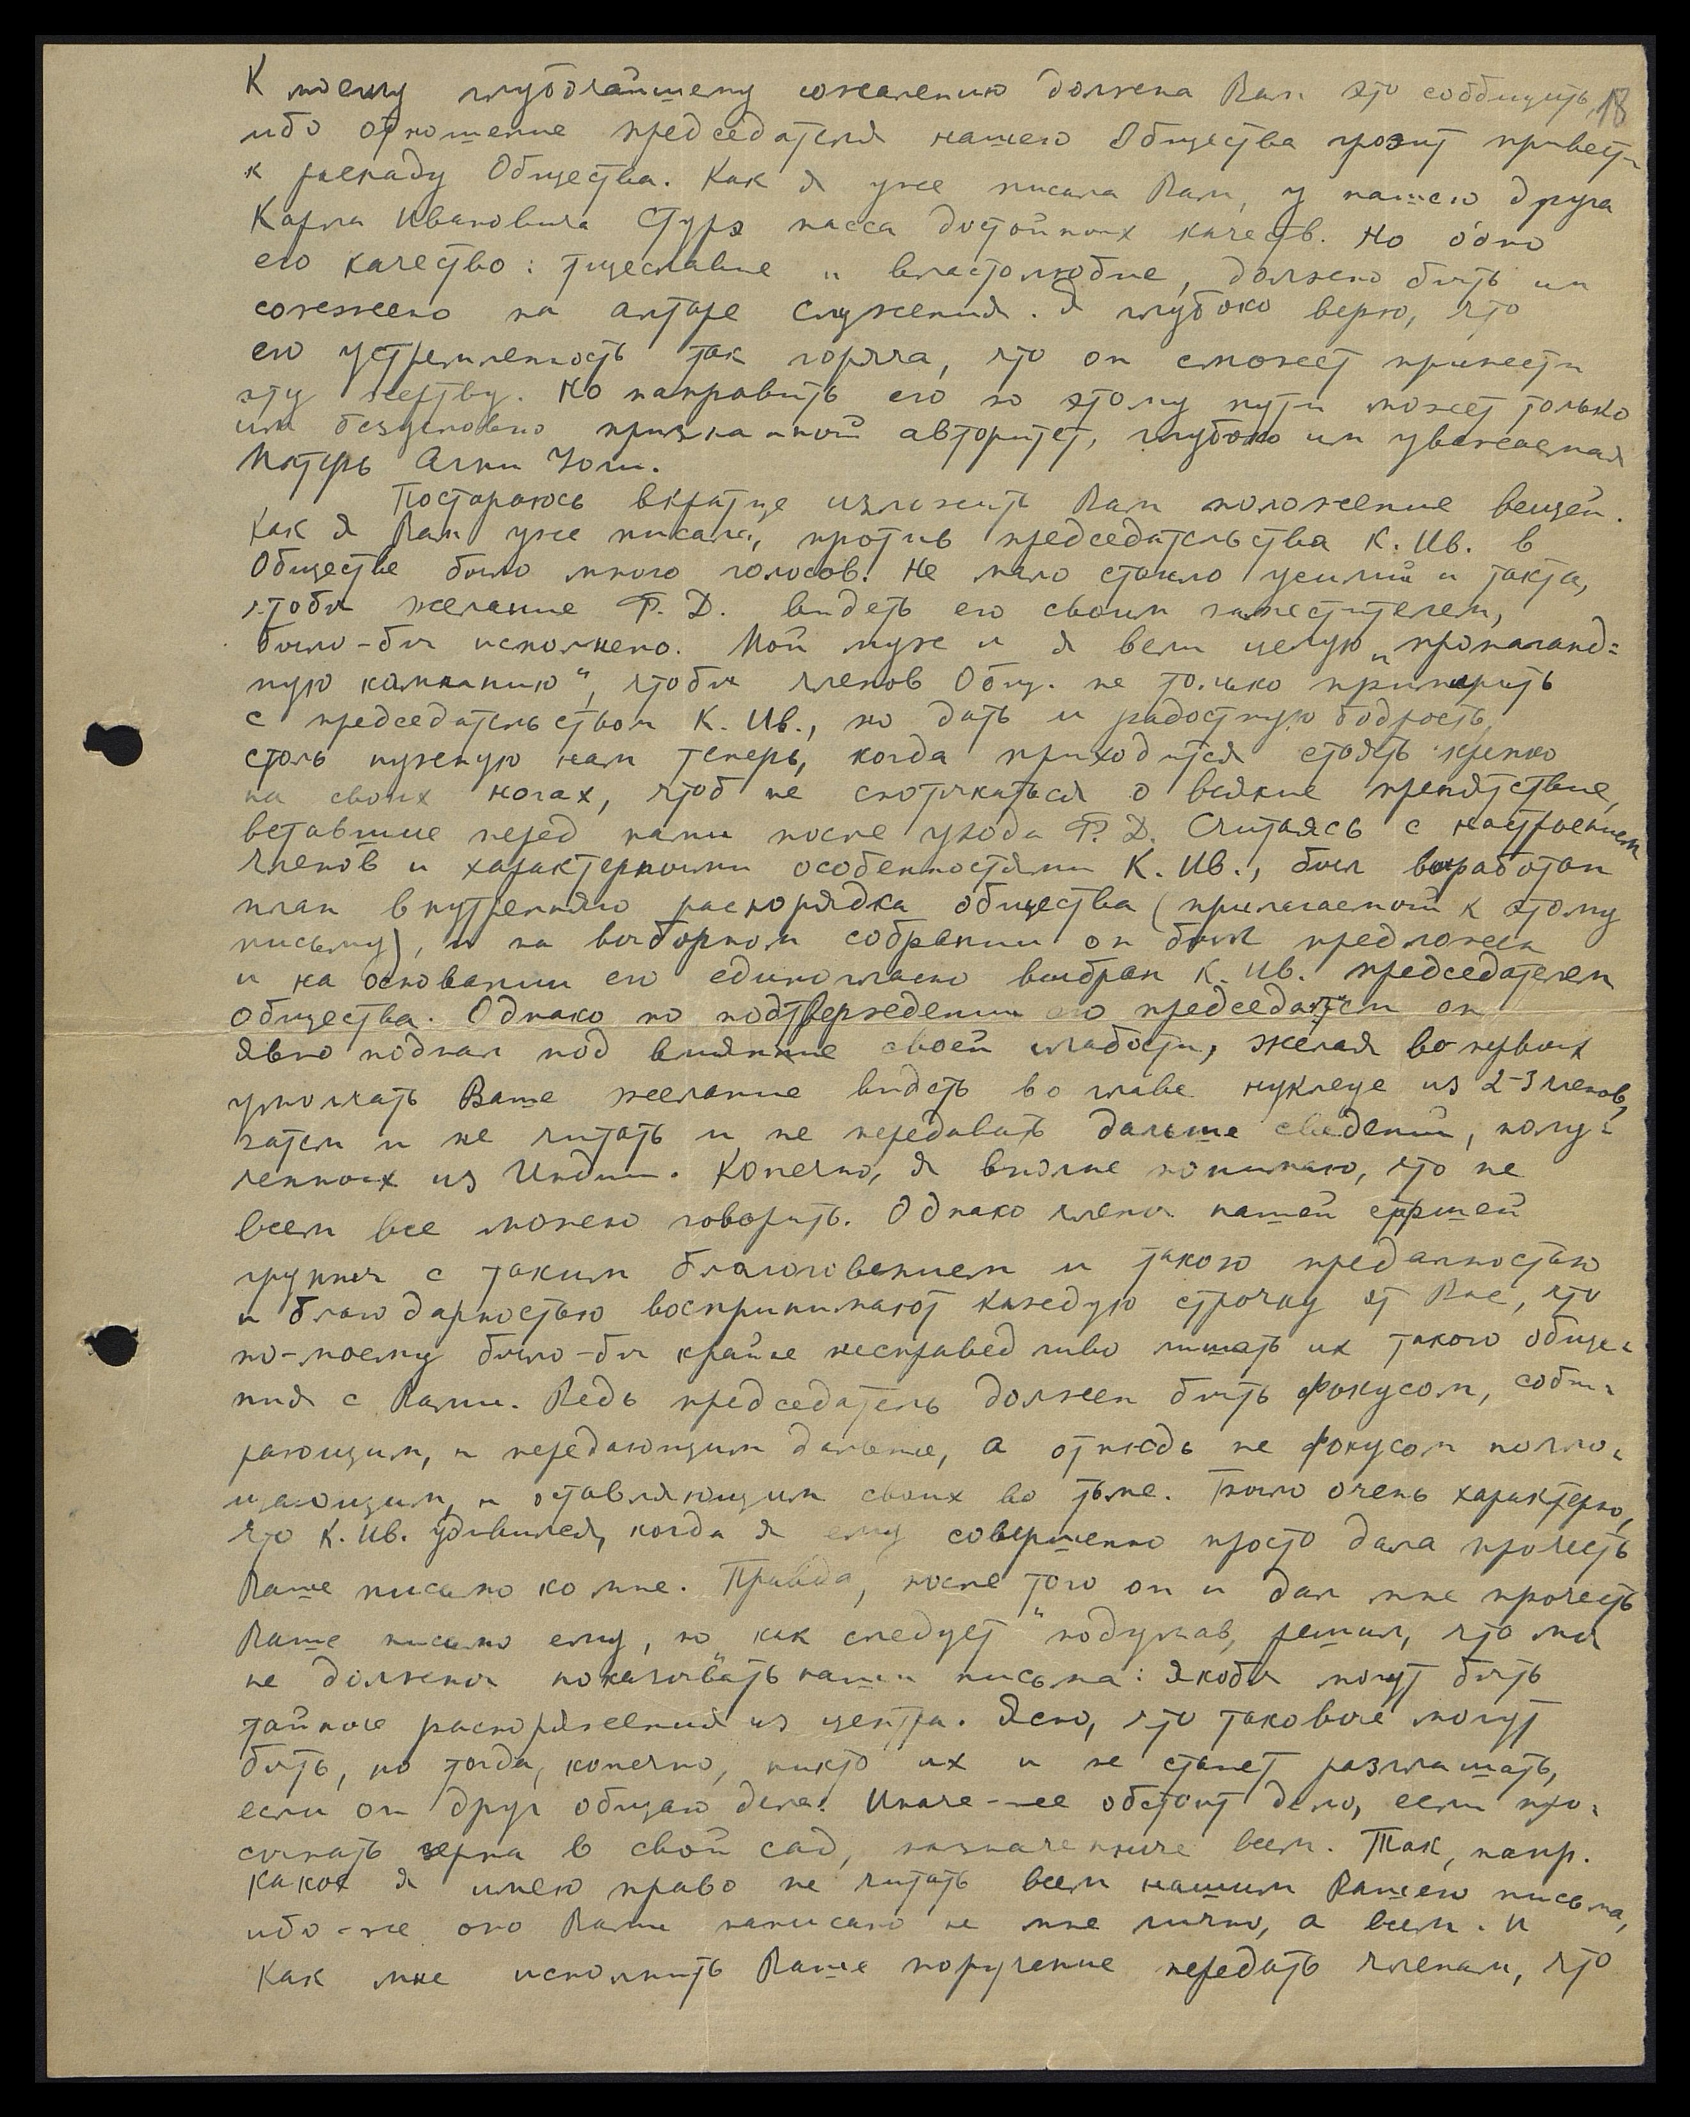 К моему глубочайшему сожалению должна Вам это сообщить, 18
ибо отношение председателя нашего Общества грозит привести
к распаду Общества. Как я уже писала Вам, у нашего друга
Карла Ивановича Стурэ масса достойных качеств. Но одно
его качество: тщеславие и властолюбие, должно быть им
сожжено на алтаре служения. Я глубоко верю, что
его устремленность так горяча, что он сможет принести
эту жертву. Но направить его по этому пути может только
им безусловно признанный авторитет, глубоко им уважаемая
Матерь Агни Йоги.
Постараюсь вкратце изложить Вам положение вещей.
Как я Вам уже писала, против председательства К. Ив. в
Обществе было много голосов. Не мало стоило усилий и такта,
чтобы желание Ф. Д. видеть его своим заместителем,
было-бы исполнено. Мой муж и я вели целую „пропаганд=
ную кампанию“, чтобы членов Общ. не только примирить
с председательством К. Ив., но дать и радостную бодрость,
столь нужную нам теперь, когда приходится стоять крепко
на своих ногах, чтоб не спотыкаться о всякие препятствие,
вставшие перед нами после ухода Ф. Д. Считаясь с настроением
членов и характерными особенностями К. Ив., был выработан
план внутреннего распорядка общества (прилагаемый к этому
письму), и на выборном собрании он был предложен
и на основании его единогласно выбран К. Ив. председателем
общества. Однако по подтверждении его председателем он
явно подпал под влияние своей слабости, желая во-первых
умолчать Ваше желание видеть во главе нуклеуе из 2-3 членов,
затем и не читать и не передавать дальше сведений, полу-
ченных из Индии. Конечно, я вполне понимаю, что не
всем все можно говорить. Однако члены нашей старшей
группы с таким благоговением и такою преданностью
и благодарностью воспринимают каждую строчку от Вас, что
по-моему было-бы крайне несправедливо лишать их такого обще-
ния с Вами. Ведь председатель должен быть фокусом, соби-
рающим, и передающим дальше, а отнюдь не фокусом погло-
щающим, и оставляющим своих во тьме. Было очень характерно,
что К. Ив. удивился, когда я ему совершенно просто дала прочесть
Ваше письмо ко мне. Правда, после того он и дал мне прочесть
Ваше письмо ему, но как следует "подумав," решил, что мы
не должны показывать наши письма: якобы могут быть
тайные распоряжения из центра. Ясно, что таковые могут
быть, но тогда, конечно, никто их и не станет разглашать,
если он друг общего дела. Иначе-же обстоит дело, если про-
сыпать зерна в свой сад, назначенные всем. Так, напр.
какое я имею право не читать всем нашим Вашего письма,
ибо-же оно Вами написано не мне лично, а всем. И
как мне исполнить Ваше поручение передать членам, что